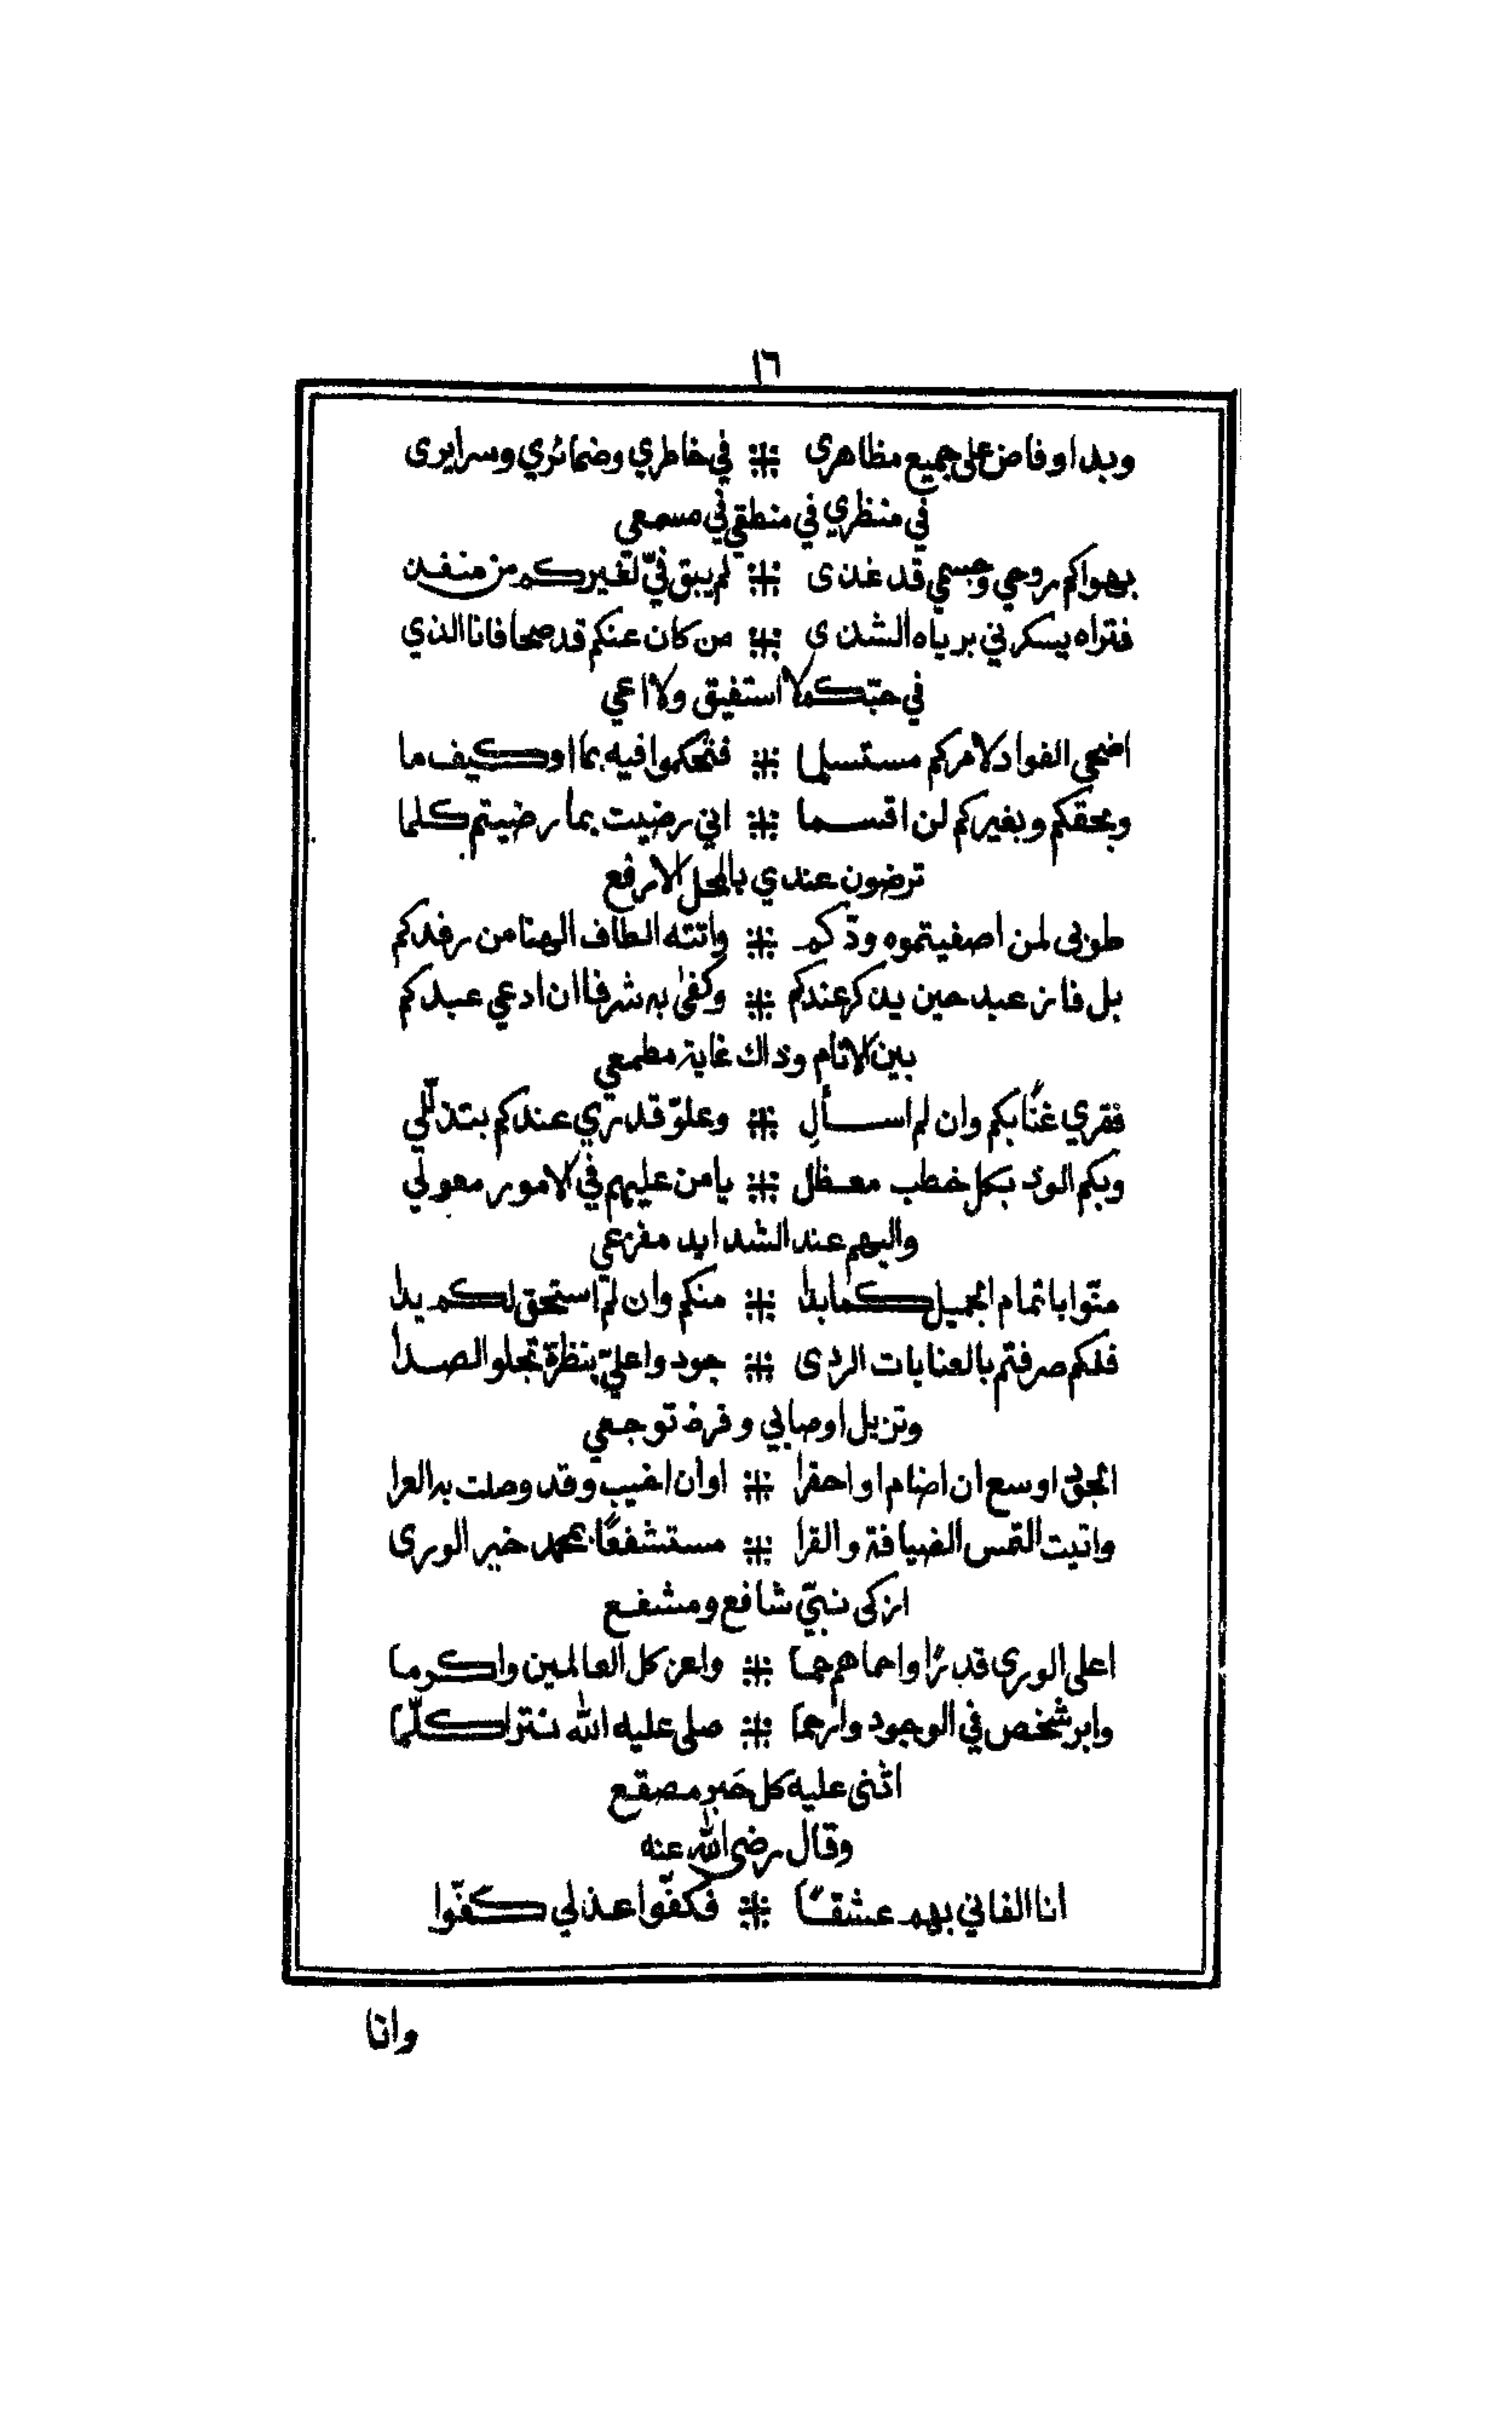 ١٦
وبدا وفاض على جميع مظاهرى ⁜ في خاطري وضمائري وسرايرى
في منظري في منطقي في مسمعي
بهواكم روحي وجسمي قد غذى ⁜ لم يبق فيّ لغيركم من منفذ
فتراه يسكرني برياه الشذى ⁜ من كان عنكم قد صحا فانا الذي
في حبّكم لا استفيق ولا اعي
اضحى الفواد لامركم مستسلما ⁜ فتحكموا فيه بما او كيف ما
وبحقكم وبغيركم لن اقسما ⁜ اني رضيت بما رضيتم كلما
ترضون عندي بالمحل الارفع
طوبى لمن اصفيتموه ودّكم ⁜ واتته الطاف الهنا من رفدكم
بل فاز عبد حين يذكر عندكم ⁜ وكفى به شرفا ان ادعي عبدكم
بين الانام وذاك غاية مطمعي
فقري غنًا بكم وان لم اسأل ⁜ وعلوّ قدري عندكم بتذلّلي
وبكم الوذ بكل خطب معضل ⁜ يا من عليهم في الامور معولي
واليهم عند الشدايد مفزعي
منّوا باتمام الجميل كما بدا ⁜ منكم وان لم استحق لكم يدا
فلكم صرفتم بالعنايات الردى ⁜ جودوا عليّ بنظرة تجلو الصدا
وتزيل اوصابي وفرط توجعي
اوسع ان اضام او احقرا ⁜ او ان اخيب وقد وصلت به العرا
واتيت التمس الضيافة والقرا ⁜ مستشفعًا بمحمد خير الورى
ازكى نبيّ شافع ومشفع
اعلى الورى قدرًا واحماهم حما ⁜ واعز كل العالمين واكرما
وابر شخص في الوجود وارحما ⁜ صلى عليه الله تترا كلّما
اثنى عليه كل حَبرٍ مصقع
وقال رضي الله عنه
انا الفاني بهم عشقًا ⁜ فكفّوا عذلي كفّوا
وانا